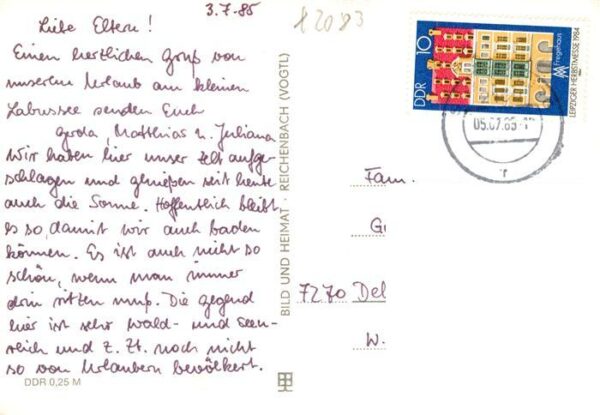 3.7.85
Liebe Eltern!
Einen herzlichen Gruß von
unserem Urlaub am kleinen
Labussee senden Euch
Gerola, Matthias u. Juliana
Wir haben hier unser Zelt aufge-
schlagen und genießen seit heute
auch die Sonne. Hoffentlich bleibt
es so, damit wir auch baden
können. Es ist auch nicht so
schön, wenn man immer
drin sitzen muß. Die Gegend
hier ist sehr Wald- und Seen-
reich und z. Zt. noch nicht
so von Urlaubern bevölkert.
DDR 0,25 M
BILD UND HEIMAT REICHENBACH (VOGTL)
82083
DDR 10
Fregehaus
LEIPZIGER HERBSTMESSE 1984
05.07.85
Fam.
G
7270 Del
W.